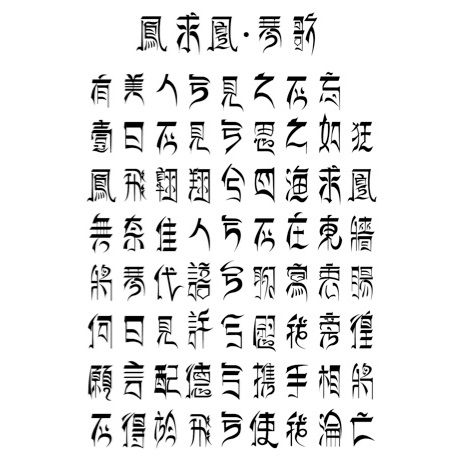 鳳求凰·琴歌
有美人兮見之不忘
壹日不見兮思之如狂
鳳飛翺翔兮四海求凰
無奈佳人兮不在東牆
將琴代語兮聊寫衷腸
何日見許兮慰我旁徨
願言配德兮攜手相將
不得於飛兮使我淪亡